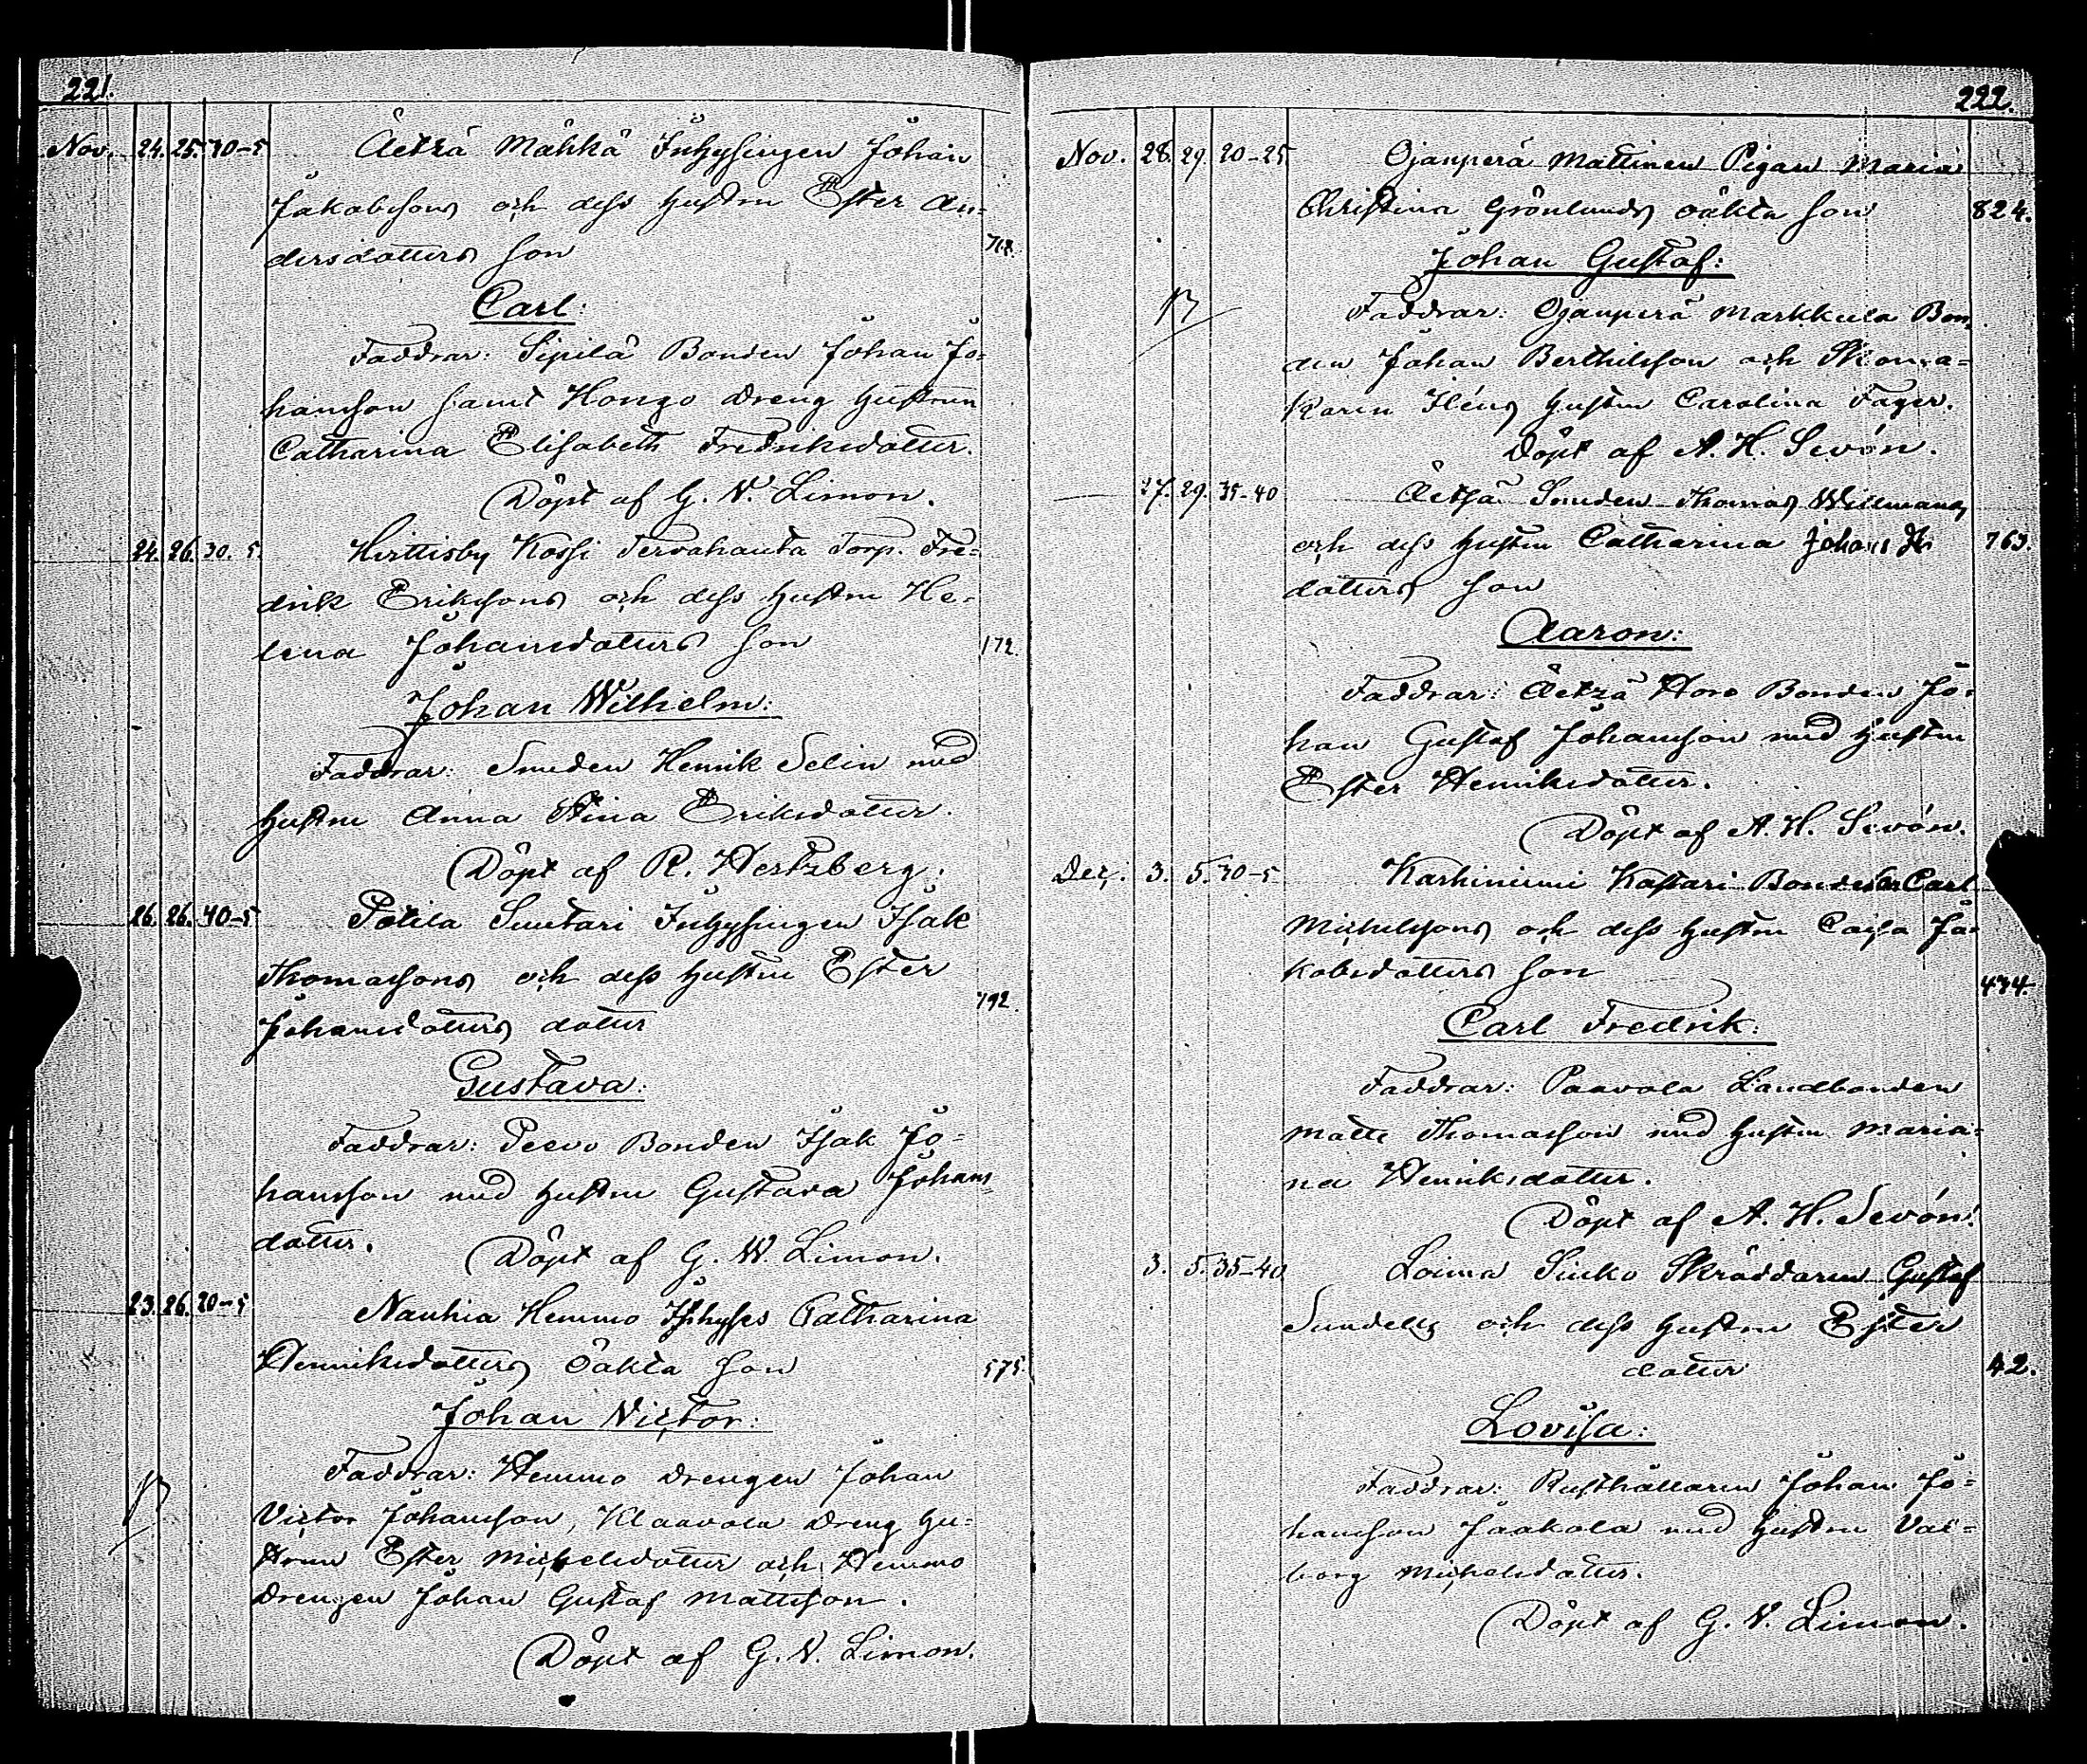 221.
Nov. 24. 25. 30-5 Åetsä Mähkä Inhysingen Johan
Jakobssons och dess hustru Ester An-
dersdotters son 768.
Carl:
Faddrar: Sipilä Bonden Johan Jo-
hansson samt Hongo Dreng hustrun
Catharina Elisabeth Fredriksdotter.
Döpt af G. W. Limon.
24. 26. 30. 5. Hirttisby Kossi Tervahauta Torp. Fre-
drik Erikssons och dess hustru He-
lena Johansdotters son 172.
Johan Wilhelm:
Faddrar: Smeden Henrik Selin med
hustru Anna Stina Eriksdotter.
Döpt af R. Hertzberg.
26. 26. 40-5 Potila Suutari Inhysingen Isak
Thomassons och dess hustru Ester
Johansdotters dotter 792.
Gustava:
Faddrar: Peevo Bonden Isak Jo-
hansson med hustru Gustava Johans-
dotter. Döpt af G. W. Limon.
23. 26. 20-5 Nauhia Hemmo Catharina
Henriksdotters oäkta son 575.
Johan Victor:
Faddrar: Hemmo Drengen Johan
Victor Johansson, Klaavola Dreng hu-
strun Ester Michelsdotter och Hemmo
Drengen Johan Gustaf Mattsson.
Döpt af G. W. Limon.
222.
Nov. 28. 29. 20-25 Ojanperä Mattinen Pigan Maria
Christina Grönlunds oäkta son 824.
Johan Gustaf:
Faddrar: Ojanperä Markkula Bon-
den Johan Berthilsson och Skoma-
karen Iléns hustru Carolina Fager.
Döpt af A. H. Sevón.
27. 29. 35-40 Åetsä Smeden Thomas Willmans
och dess hustru Catharina Johans
dotters son 763.
Aaron:
Faddrar: Åetsä Horo Bonden Jo-
han Gustaf Johansson med hustru
Ester Henriksdotter.
Döpt af A. H. Sevón.
Dec. 3. 5. 30-5 Karhiniemi Kastari Bonden Carl
Michelssons och dess hustru Caisa Ja-
kobsdotters son 434.
Carl Fredrik:
Faddrar: Paavola Landbonden
Matts Thomasson med hustru Maria-
na Henriksdotter.
Döpt af A. H. Sevón.
3. 5. 35-40 Loima Sinko Skräddaren Gustaf
Sundells och dess hustru Ester
dotter 42.
Lovisa:
Faddrar: Rusthållaren Johan Jo-
hansson Jaakola med hustru Val-
borg Michelsdotter.
Döpt af G. W. Limon.